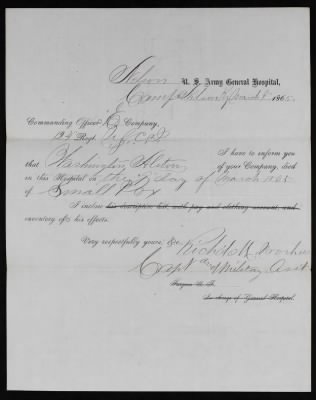 Nelson U. S. Army General Hospital,
Camp Nelson Ky March 8 1865.
Commanding Officer Company,
Regt U. S. C.
I have to inform you
that Washington of your Company, died
in this Hospital on the day of March 1865
of Small Pox
I inclose his descriptive list with pay and clothing account, and
inventory of his effects.
Very respectfully yours, &c
Richd
Capt & Military Asst
Surgeon U. S. A.
In charge of General Hospital.